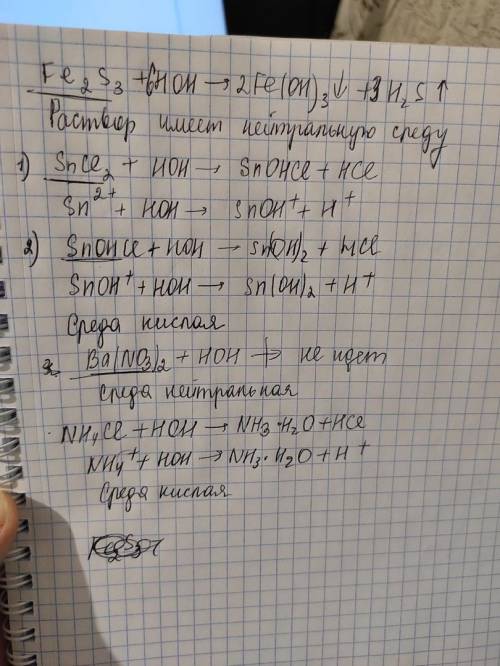 Fe₂S₃ + 6HOH → 2Fe(OH)₃↓ + 3H₂S↑
Раствор имеет нейтральную среду
1) SnCl₂ + HOH → SnOHCl + HCl
Sn²⁺ + HOH → SnOH⁺ + H⁺
2) SnOHCl + HOH → Sn(OH)₂ + HCl
SnOH⁺ + HOH → Sn(OH)₂ + H⁺
Среда кислая
Ba(NO₃)₂ + HOH ↛ не идет
Среда нейтральная
NH₄Cl + HOH → NH₃·H₂O + HCl
NH₄⁺ + HOH → NH₃·H₂O + H⁺
Среда кислая